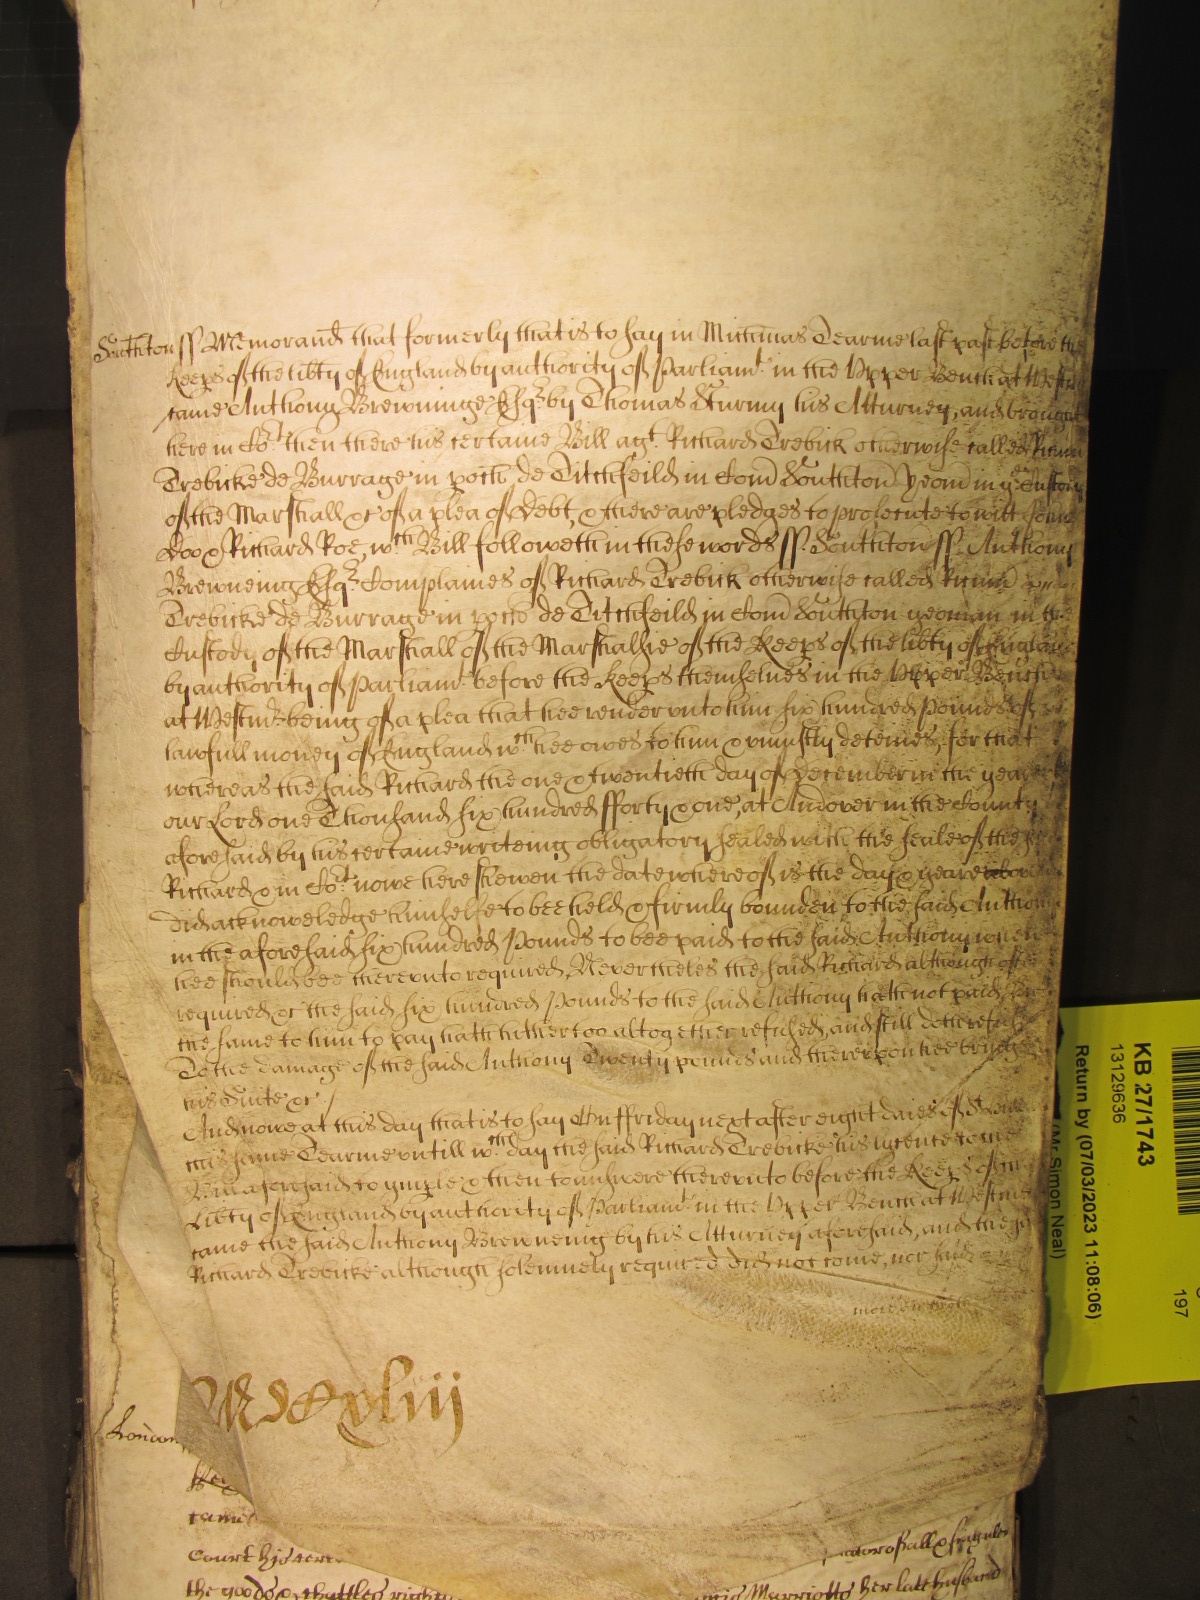 Southton ss Memorand that formerly that is to say in Michmas Tearme last past before the
Keeps of the libty of England by authority of Parliamt in the Upper Bench at Westm
came Anthony Brewninge Esqr by Thomas Sturmy his Atturney, and brought
here in Cort then there his certaine Bill agt Richard Trebick otherwise called Ricum
Trebicke de Burrage in poch de Titchfeild in Com Southton yeom in ye Custody
of the Marshall &c of a plea of Debt, & there are pledges to prosecute to witt John
Doo & Richard Roe, wch Bill followeth in these words ss. Southton ss. Anthony
Brewneing Esqr Complaines of Richard Trebick otherwise called Ricum
Trebicke de Burrage in poch de Titchfeild in Com Southton yeoman in the
Custody of the Marshall of the Marshalsie of the Keeps of the libty of England
by authority of Parliamt before the Keeps themselues in the Upper Bench
at Westmr being of a plea that hee render vnto him six hundred Pounds of
lawfull money of England wch hee owes to him & vniustly deteines, for that
whereas the said Richard the one & twentieth day of December in the yeare
our Lord one Thousand six hundred fforty & one, at Andover in the County
aforesaid by his certaine writeing obligatory sealed with the seale of the
Richard & in Cort nowe here shewen the date whereof is the day & yeare aboue
did acknowledge himselfe to bee held & firmly bounden to the said Anthony
in the aforesaid six hundred Pounds to bee paid to the said Anthony when
hee should bee therevnto required, NeverthelES the said Richard although often
required &c the said six hundred Pounds to the said Anthony hath not paid,
the same to him to pay hath hitherto altogether refused, and still doth refuse
To the damage of the said Anthony Twenty pounds and therevpon hee brings
his Suite &c
And nowe at this day that is to say On ffriday next after eight daies of St
this same Tearme vntill wch day the said Richard Trebicke his licence to the
Bill aforesaid to imple & then to answere therevnto before the Keeps of the
Libty of England by authority of Parliamt in the Upper Bench at Westmr
came the said Anthony Brewneing by his Atturney aforesaid, and the
Richard Trebicke although solemnely required did not come, nor said
MDCCxliij
London
Kee
came
Court his certe of all & singuler
the goods & chattles Marriotts her late husband
KB 27/1743
13129636
Return by (07/03/2023 11:08:06)
(Mr Simon Neal)
197